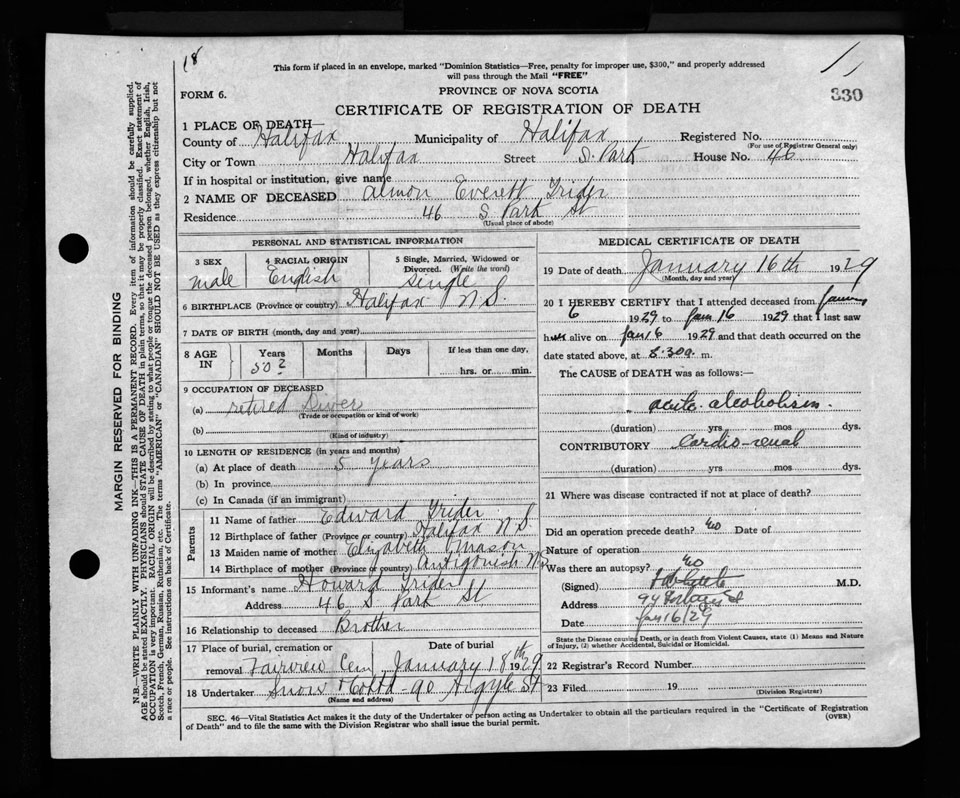 18
This form if placed in an envelope, marked "Dominion Statistics—Free, penalty for improper use, $300," and properly addressed
will pass through the Mail "FREE"
FORM 6.
PROVINCE OF NOVA SCOTIA
330
CERTIFICATE OF REGISTRATION OF DEATH
1 PLACE OF DEATH—
County of Halifax Municipality of Halifax Registered No.
(For use of Registrar General only)
City or Town Halifax Street S. Park House No. 46
If in hospital or institution, give name
2 NAME OF DECEASED Almon Everett Grider
Residence 46 S Park St
(Usual place of abode)
PERSONAL AND STATISTICAL INFORMATION
3 SEX male
4 RACIAL ORIGIN English
5 Single, Married, Widowed or
Divorced. (Write the word)
Single
6 BIRTHPLACE (Province or country) Halifax N S.
7 DATE OF BIRTH (month, day and year)
8 AGE IN Years Months Days If less than one day,
50? hrs. or min.
9 OCCUPATION OF DECEASED
(a) retired Diver
(Trade or occupation or kind of work)
(b)
(Kind of industry)
10 LENGTH OF RESIDENCE (in years and months)
(a) At place of death 5 years
(b) In province
(c) In Canada (if an immigrant)
Parents
11 Name of father Edward Grider
12 Birthplace of father (Province or country) Halifax N S.
13 Maiden name of mother Elizabeth Mason
14 Birthplace of mother (Province or country) Antigonish N S
15 Informant's name Howard Grider
Address 46 S Park St
16 Relationship to deceased Brother
17 Place of burial, cremation or Date of burial
removal Fairview Cem January 18th 1929
18 Undertaker Snow & Co Ltd - 90 Argyle St
(Name and address)
MEDICAL CERTIFICATE OF DEATH
19 Date of death January 16th 1929
(Month, day and year)
20 I HEREBY CERTIFY that I attended deceased from January
6 1929 to Jan 16 1929 that I last saw
him alive on Jan 16 1929 and that death occurred on the
date stated above, at 8.30 a. m.
The CAUSE of DEATH was as follows:—
acute alcoholism.
(duration) yrs mos dys.
CONTRIBUTORY Cardio-renal
(duration) yrs mos dys.
21 Where was disease contracted if not at place of death?
Did an operation precede death? no Date of
Nature of operation
Was there an autopsy? no
(Signed) M.D.
Address
Date Jan 16/29
State the Disease causing Death, or in death from Violent Causes, state (1) Means and Nature
of Injury, (2) whether Accidental, Suicidal or Homicidal.
22 Registrar's Record Number
23 Filed 19
(Division Registrar)
SEC. 46—Vital Statistics Act makes it the duty of the Undertaker or person acting as Undertaker to obtain all the particulars required in the "Certificate of Registration
of Death" and to file the same with the Division Registrar who shall issue the burial permit.
(OVER)
MARGIN RESERVED FOR BINDING
N.B.—WRITE PLAINLY WITH UNFADING INK—THIS IS A PERMANENT RECORD. Every item of information should be carefully supplied.
AGE should be stated EXACTLY. PHYSICIANS should STATE CAUSE OF DEATH in plain terms, so that it may be properly classified. Exact statement of
OCCUPATION is very important. RACIAL ORIGIN will be described by stating to what people or tongue the deceased person belonged, whether English, Irish,
Scotch, French, German, Russian, Ruthenian, etc. The terms "AMERICAN" or "CANADIAN" SHOULD NOT BE USED as they express citizenship but not
a race or people. See instructions on back of Certificate.